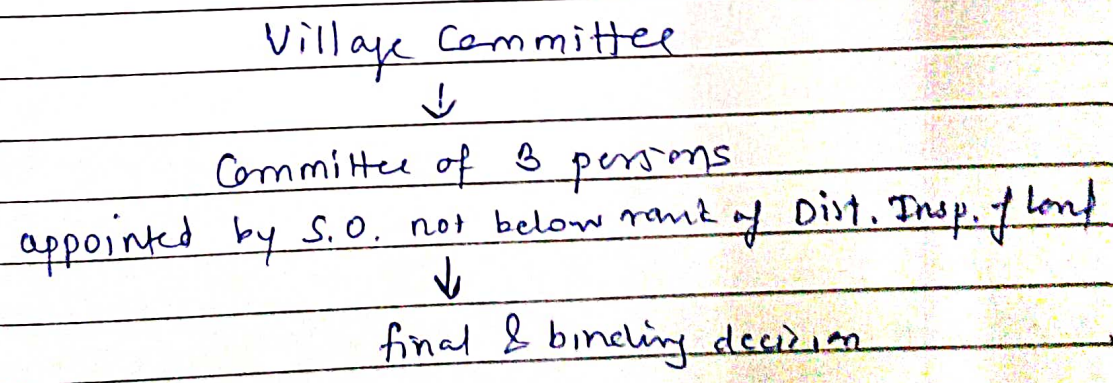 Village Committee
↓
Committee of 3 persons
appointed by S.O. not below rank of Dist. Insp. of Land
↓
final & binding decision